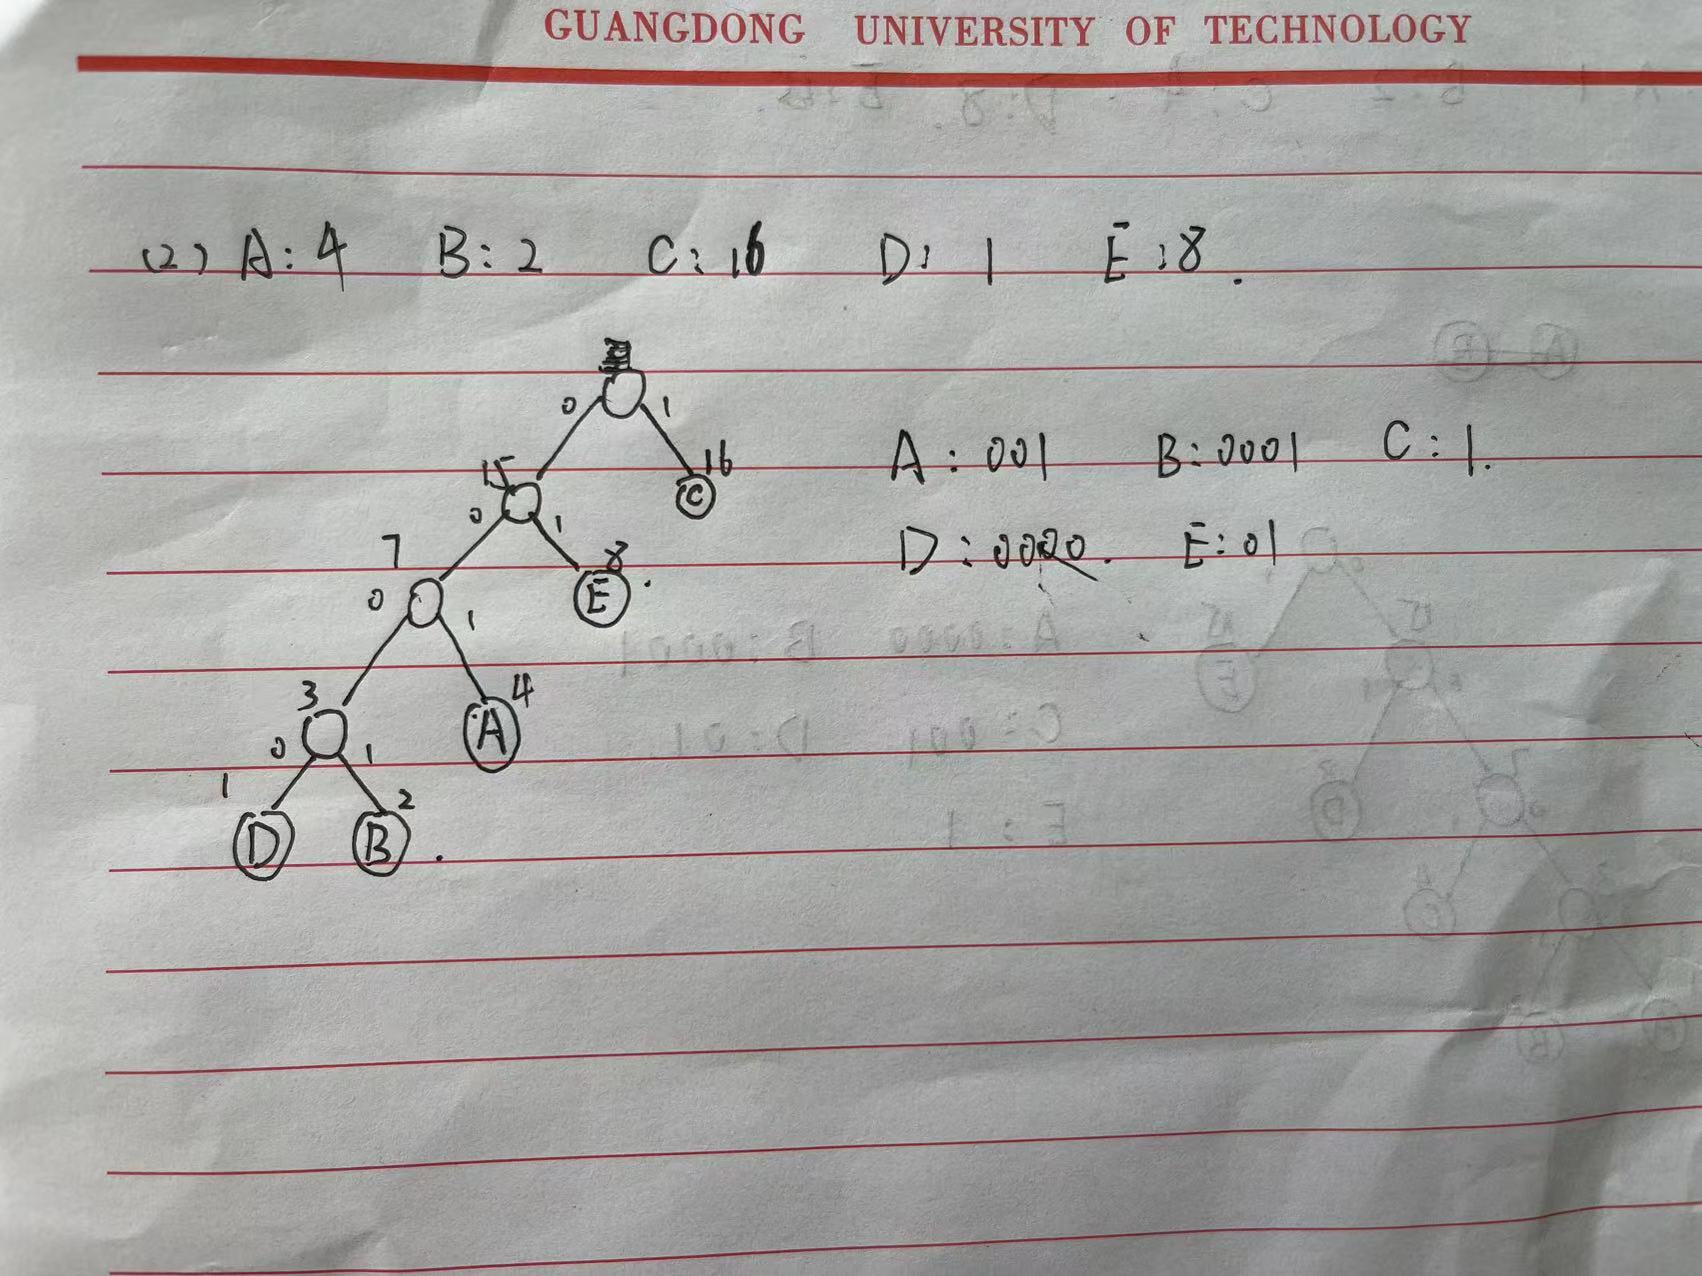 GUANGDONG UNIVERSITY OF TECHNOLOGY
(2) A: 4 B: 2 C: 16 D: 1 E: 8.
0 1
15 16
C
0 1
7 8
E
0 1
3 4
A
0 1
1 2
D B
A: 001 B: 0001 C: 1.
D: 0000. E: 01